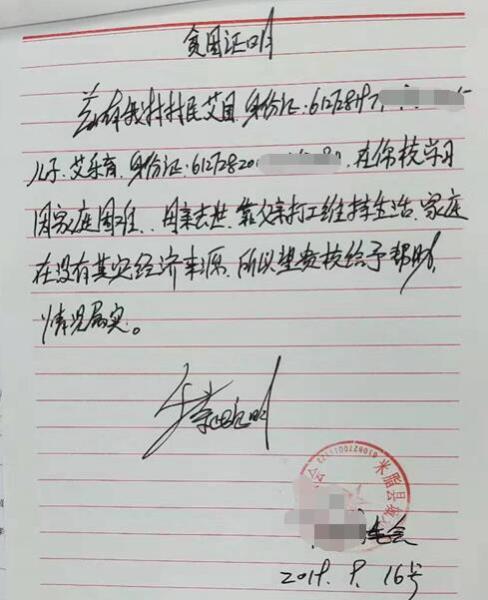 贫困证明
兹有我村村民艾国,身份证:612728197
儿子,艾乐育,身份证:61272820 ,在你校学习
因家庭困难、母亲去世,靠父亲打工维持生活,家庭
在没有其它经济来源,所以望贵校给予帮助,
情况属实。
米脂县
委会
2019.9.16号